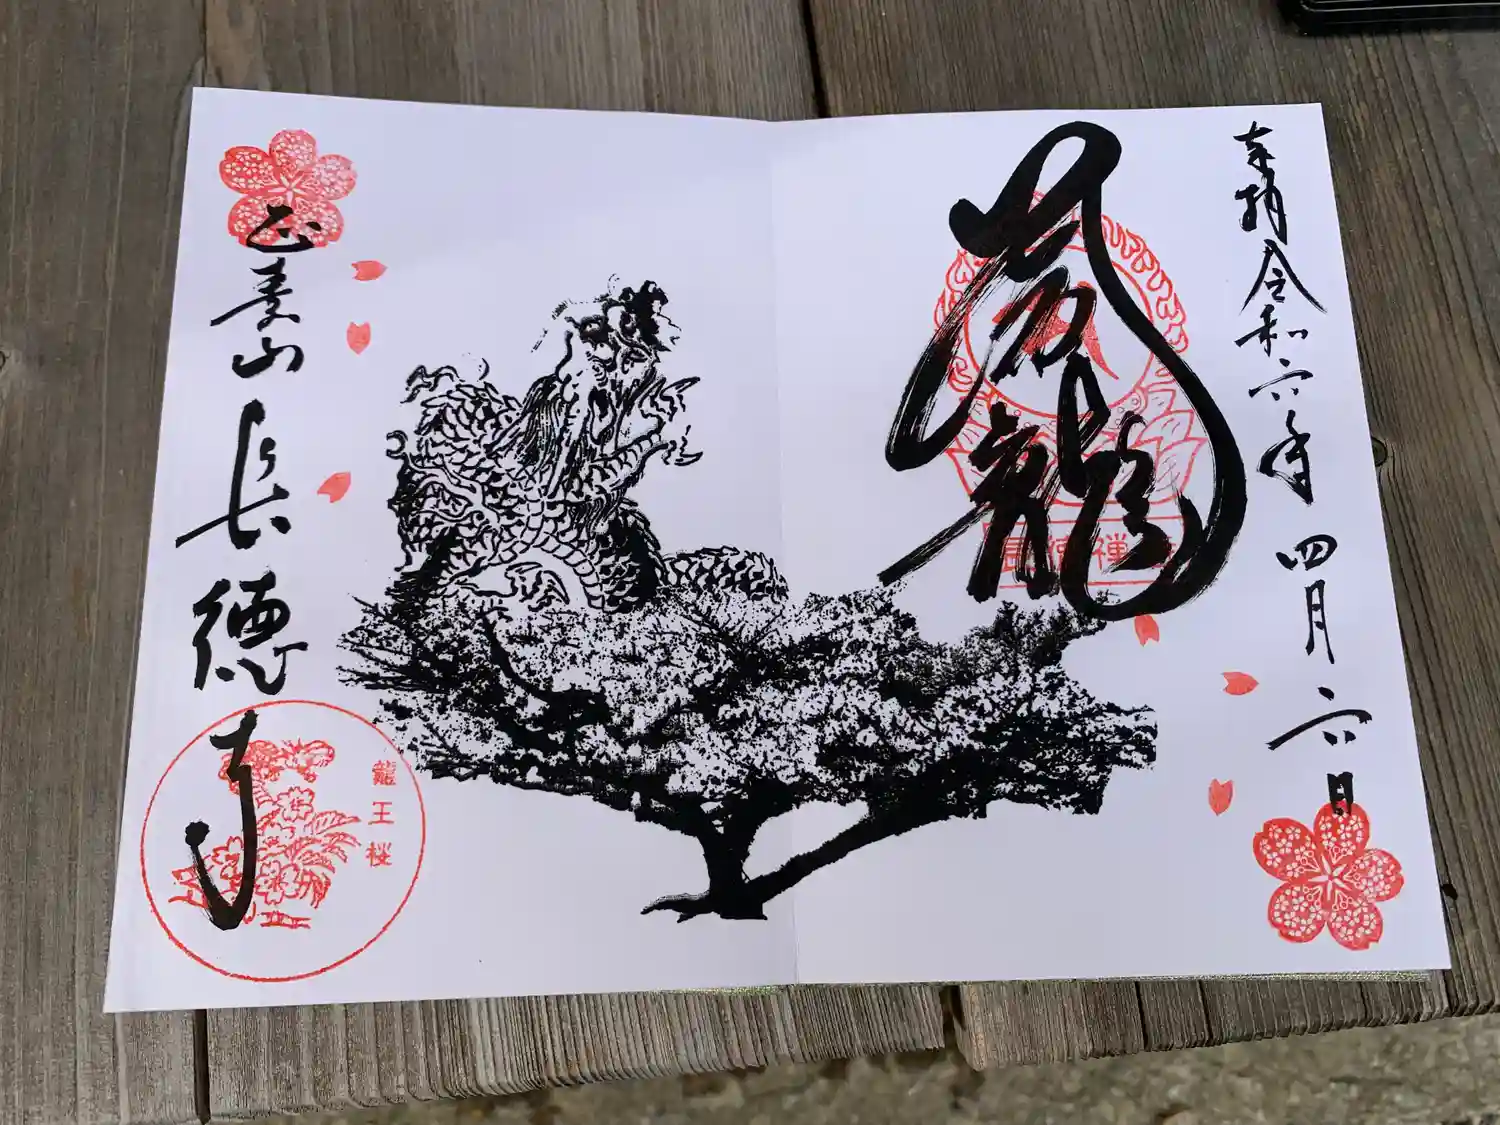 奉拝 令和六年 四月六日
龍
正寿山 長徳寺
龍王桜